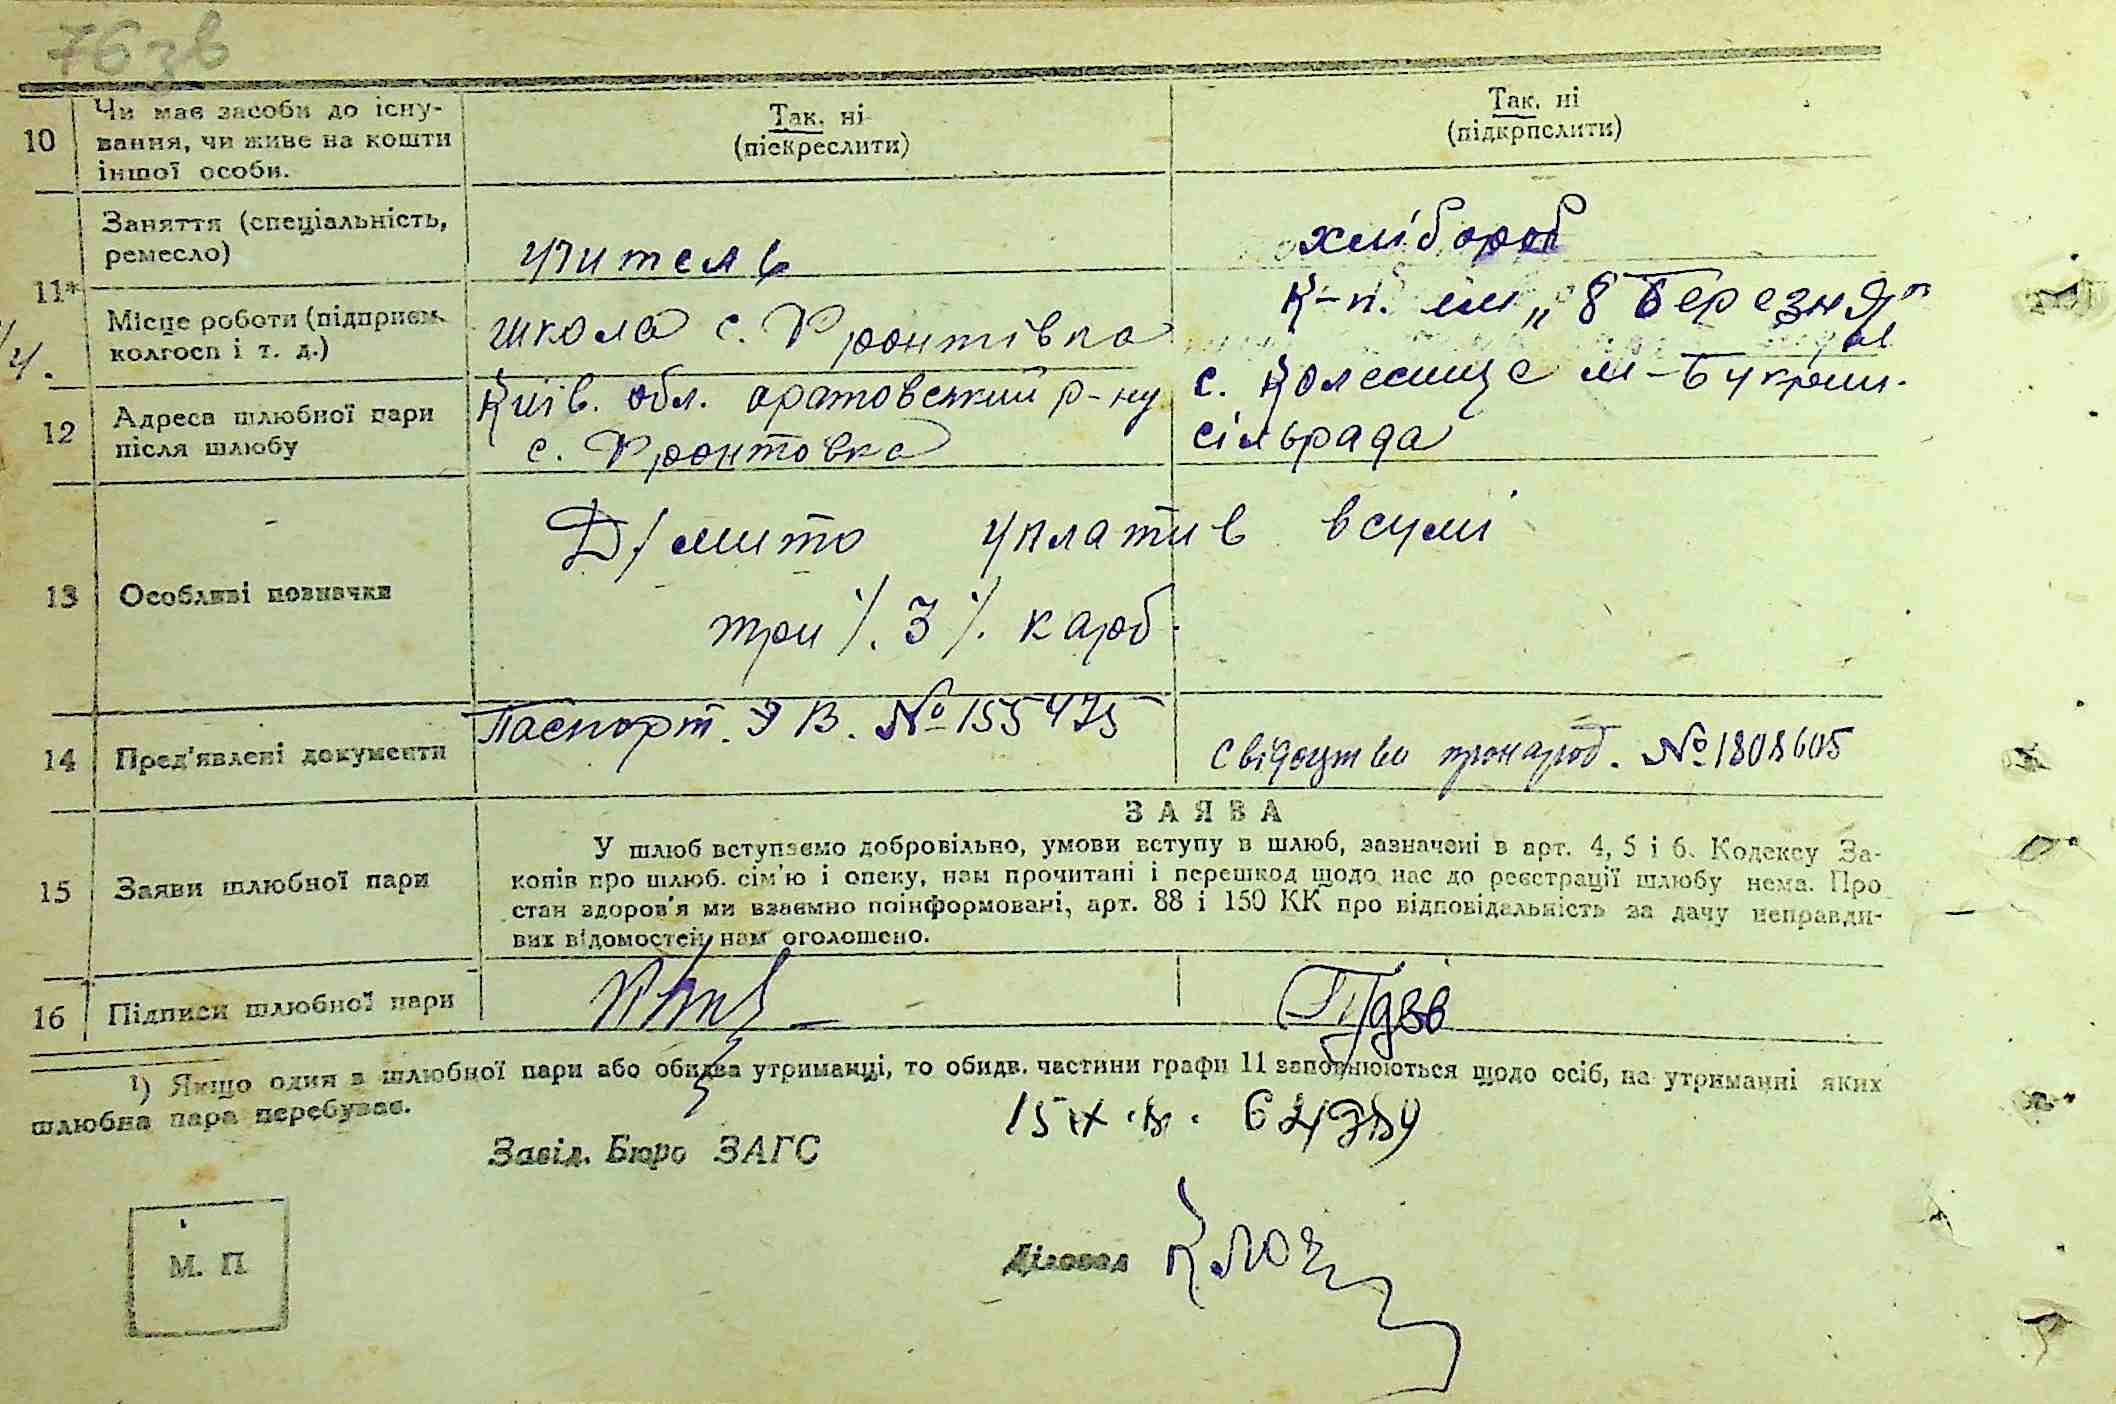 76 зв
10 Чи має засоби до існу-
вання, чи живе на кошти
іншої особи.
Так. ні
(піекреслити)
Так. ні
(підкрпслити)
11*
Заняття (спеціальність,
ремесло)
учитель
хлібороб
Місце роботи (підприєм.
колгосп і т. д.)
школа с. Фронтівка
К-п. ім „8 Березня"
12 Адреса шлюбної пари
після шлюбу
Київ. обл. оратовський р-ну
с. Фронтовка
с. Колесище м-Букрин.
сільрада
13 Особливі позначки
Д/мито уплатив всумі
три /.3/. карб.
14 Пред'явлені документи
Паспорт. ЭВ. № 155475
свідоцтво пронарод. № 1808605
15 Заяви шлюбної пари
ЗАЯВА
У шлюб вступаємо добровільно, умови вступу в шлюб, зазначені в арт. 4, 5 і 6. Кодексу За-
конів про шлюб. сім'ю і опеку, нам прочитані і перешкод щодо нас до реєстрації шлюбу нема. Про
стан здоров'я ми взаємно поінформовані, арт. 88 і 150 КК про відповідальність за дачу неправди-
вих відомостей нам оголошено.
16 Підписи шлюбної пари
¹) Якщо один в шлюбної пари або обидва утриманці, то обидв. частини графи 11 заповнюються щодо осіб, на утриманні яких
шлюбна пара перебуває.
Завід. Бюро ЗАГС
М. П
Діловод